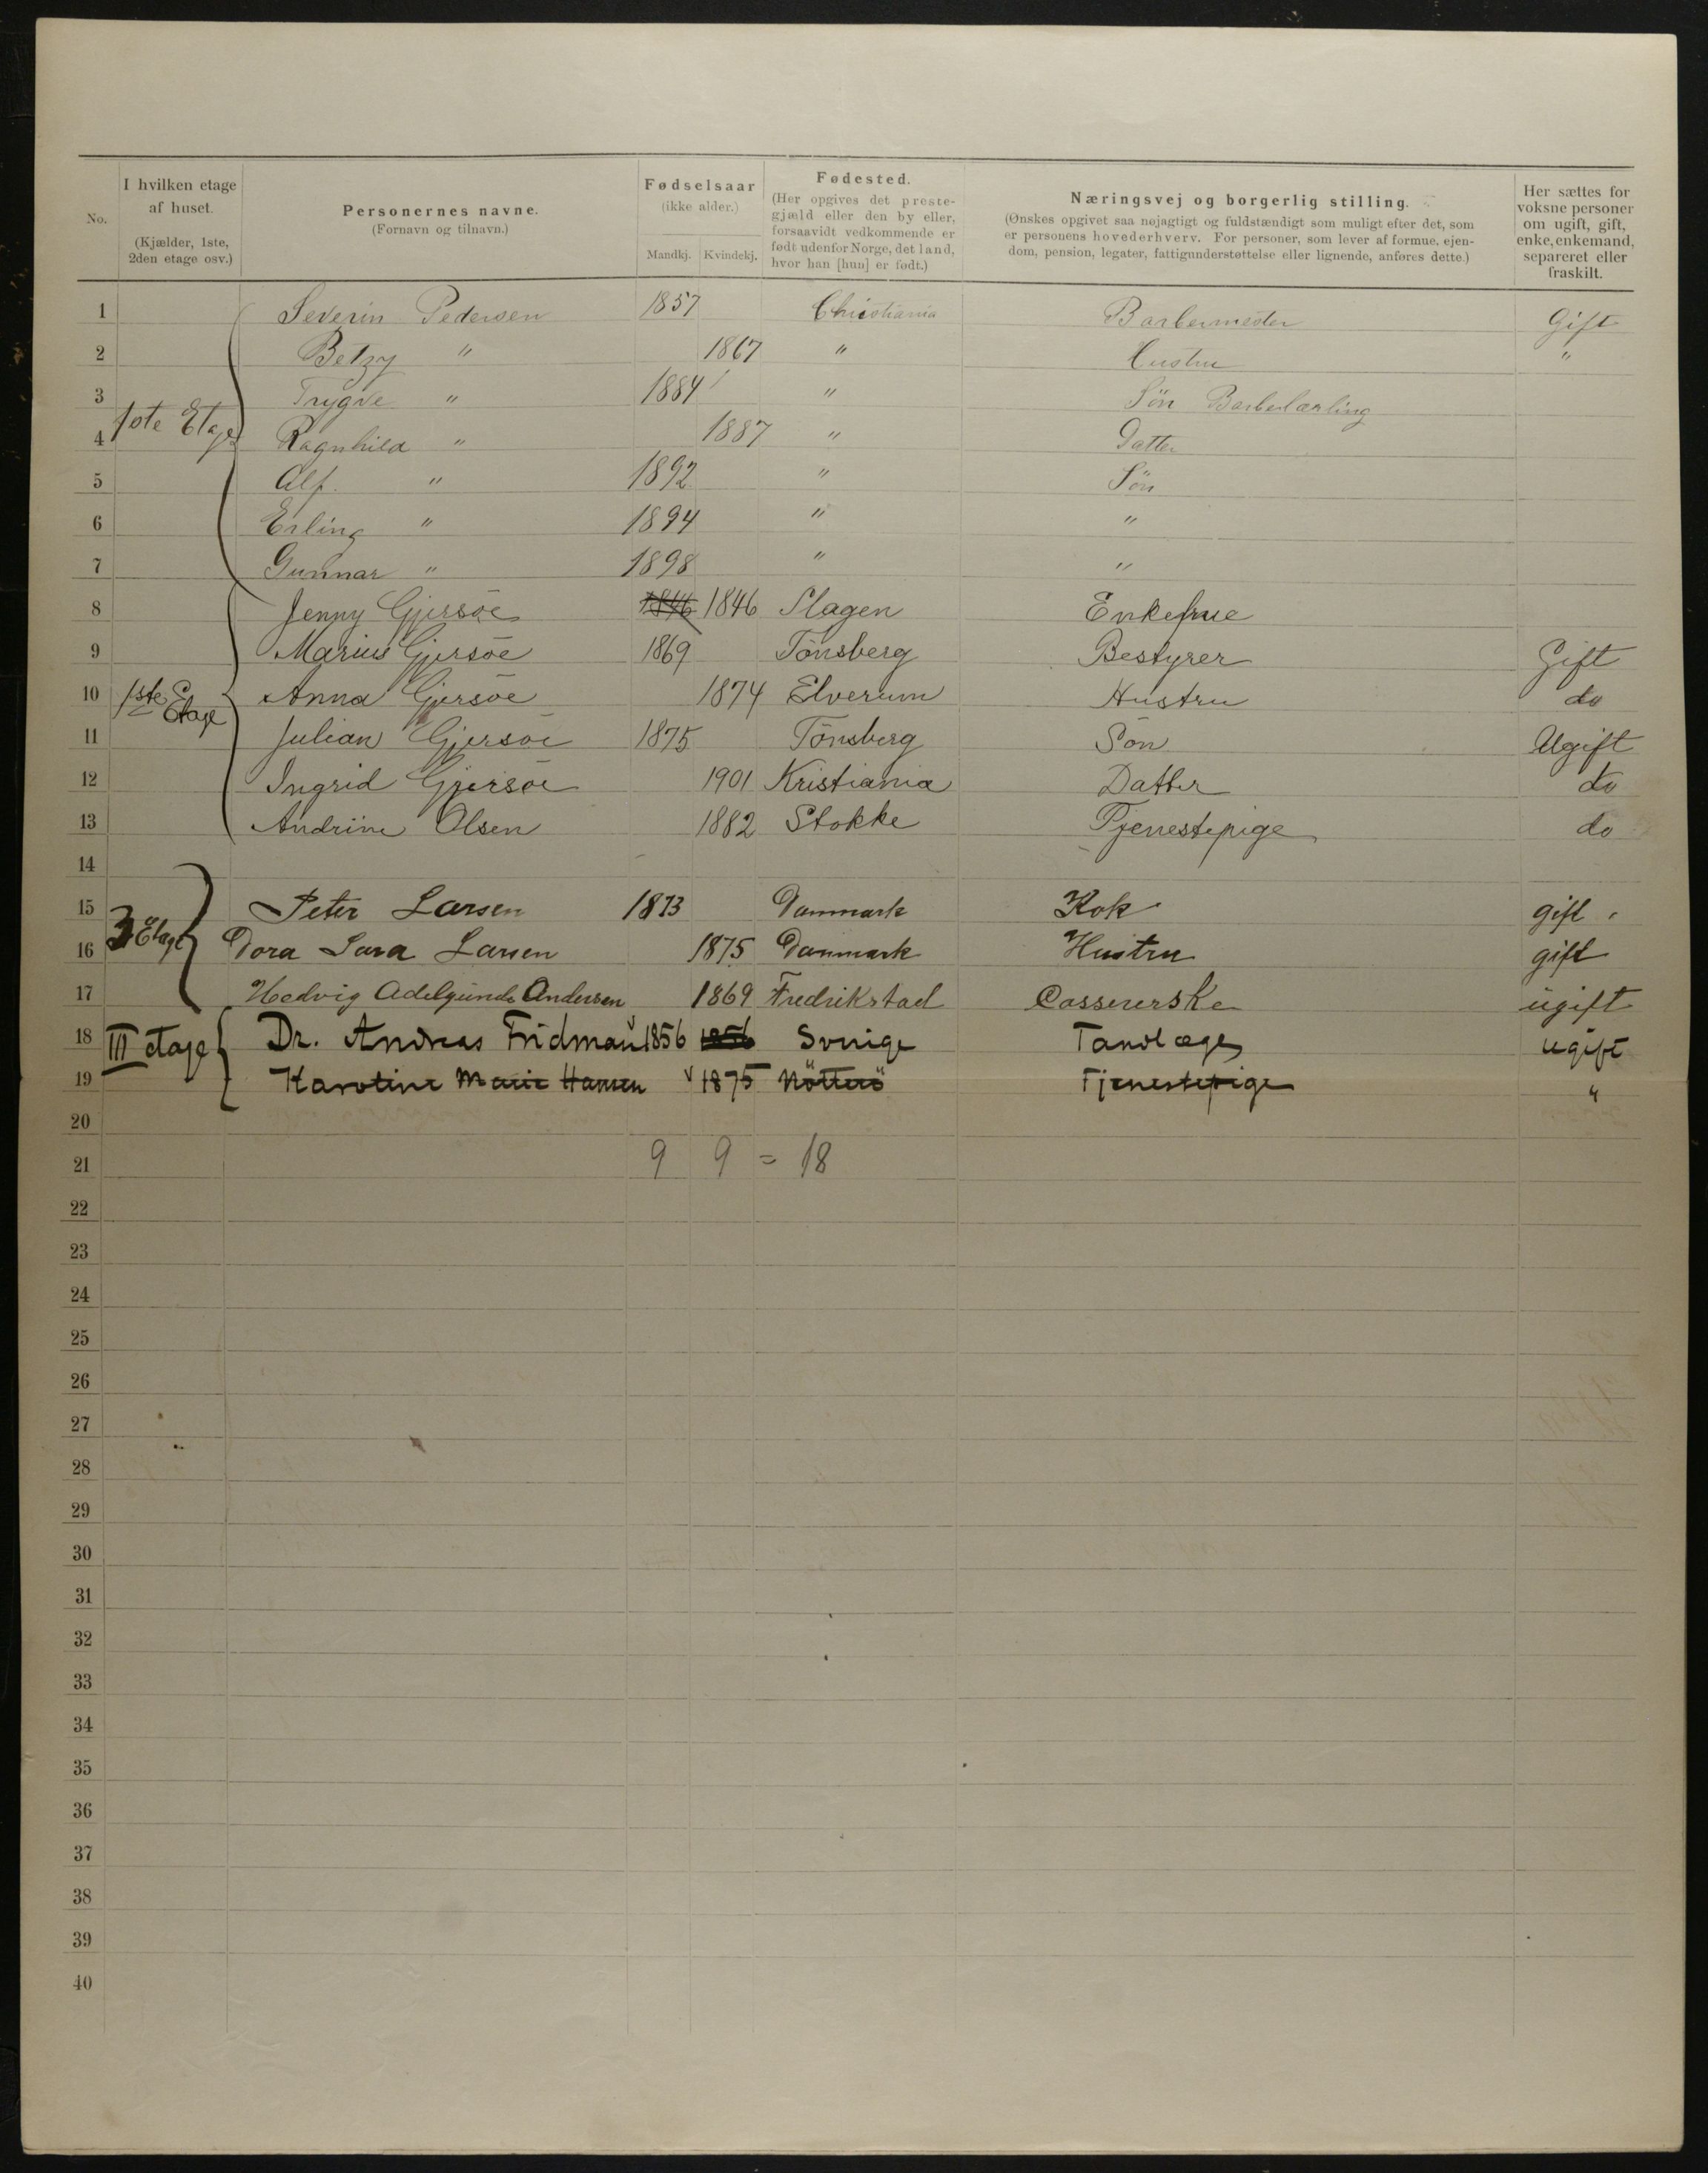 No. I hvilken etage af huset. (Kjælder, 1ste, 2den etage osv.) Personernes navne. (Fornavn og tilnavn.) Fødselsaar (ikke alder.) Mandkj. Kvindekj. Fødested. (Her opgives det prestegjæld eller den by eller, forsaavidt vedkommende er født udenfor Norge, det land, hvor han [hun] er født.) Næringsvej og borgerlig stilling. (Ønskes opgivet saa nøjagtigt og fuldstændigt som muligt efter det, som er personens hovederhverv. For personer, som lever af formue, ejendom, pension, legater, fattigunderstøttelse eller lignende, anføres dette.) Her sættes for voksne personer om ugift, gift, enke, enkemand, separeret eller fraskilt.
1 Severin Pedersen 1857 Christiania Barbermester Gift
2 Betzy " 1867 " Hustru "
3 Trygve " 1884 " Sön Barberlærling
1ste Etage
4 Ragnhild " 1887 " Datter
5 Alf. " 1892 " Sön
6 Erling " 1894 " "
7 Gunnar " 1898 " "
8 Jenny Gjersöe 1846 1846 Slagen Enkefrue
9 Marius Gjersöe 1869 Tönsberg Bestyrer Gift
10 1ste Etage Anna Gjersöe 1874 Elverum Hustru do
11 Julian Gjersöe 1875 Tönsberg Sön Ugift
12 Ingrid Gjersöe 1901 Kristiania Datter do
13 Andrine Olsen 1882 Stokke Tjenestepige do
14
15 Peter Larsen 1873 Danmark Kok gift
16 3 Etage Dora Sara Larsen 1875 Danmark Hustru gift
17 Hedvig Adelgunde Andersen 1869 Fredrikstad Cassererske ugift
18 III etage Dr. Andreas Fridman 1856 1856 Sverige Tandlæge ugift
19 Karoline Marie Hansen 1875 Nötterö Tjenestepige "
20
21 9 9 = 18
22
23
24
25
26
27
28
29
30
31
32
33
34
35
36
37
38
39
40